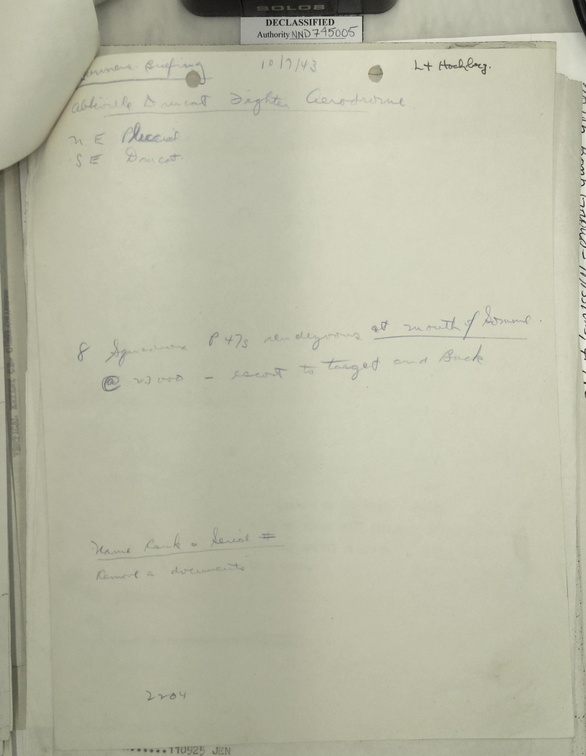 SOLOS
DECLASSIFIED
Authority NND745005
Gunners Briefing 10/7/43 Lt Hochberg.
Abbeville Drucat Fighter Aerodrome
N E
S E Drucat
8 Squadrons P 47s rendezvous at mouth of Somme.
@ 23000 - escort to target and Back
Name Rank & Serial #
documents
2204
110525 JEN